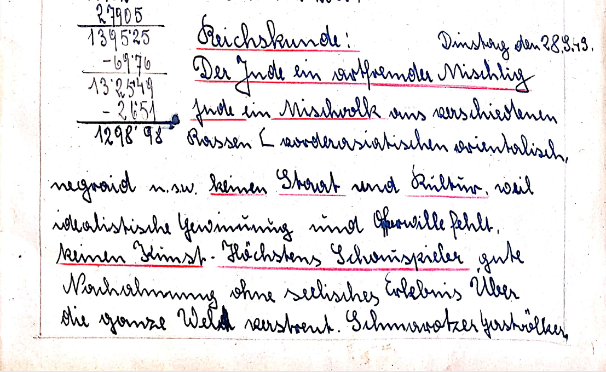 27905
1395'25
- 69'76
132549
- 2651
1298'98
Reichskunde: Dinstag den 28.9.43.
Der Jude ein artfremder Mischlig
Jude ein Mischvolk aus verschiedenen
Rassen ( vorderasiatischen orientalisch,
negroid u.sw. keinen Staat und Kultur, weil
idealistische Gesinnung und Oferwille fehlt.
keinen Kunst - Höchstens Schauspieler gute
Nachahmung ohne seelisches Erlebnis Über
die ganze Welt verstreut. Schmarotzer Gastvölker,